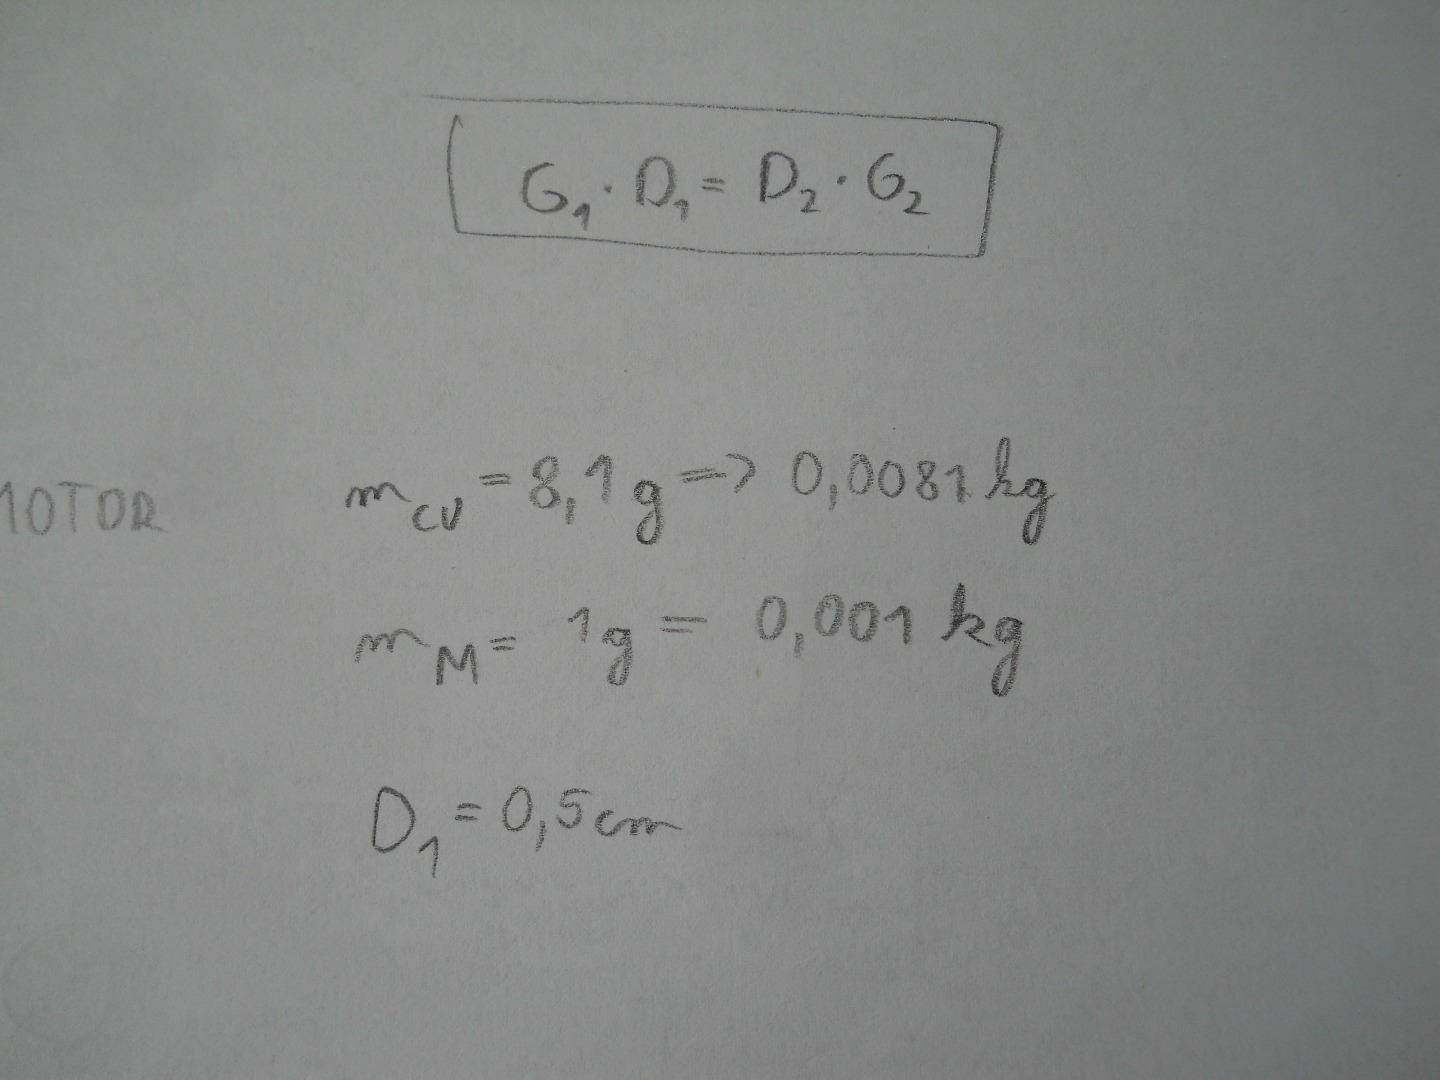 G₁ · D₁ = D₂ · G₂
m_CU = 8,1 g => 0,0081 kg
m_M = 1g = 0,001 kg
D₁ = 0,5 cm